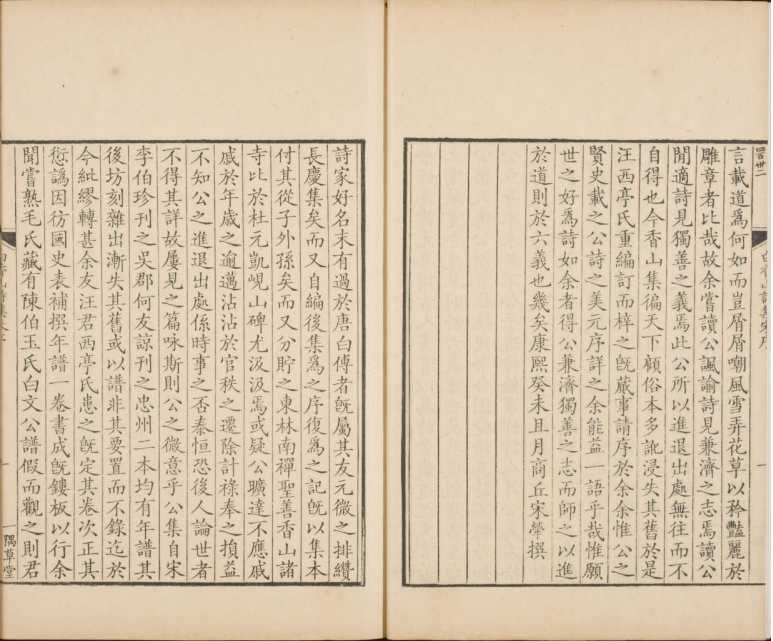 言載道爲何如而豈屑屑嘲風雪弄花草以矜豔麗於
雕章者比哉故余嘗讀公諷諭詩見兼濟之志焉讀公
閒適詩見獨善之義焉此公所以進退出處無往而不
自得也今香山集徧天下顧俗本多訛浸失其舊於是
汪西亭氏重編訂而梓之旣蕆事請序於余余惟公之
賢史載之公詩之美元序詳之余能益一語乎哉惟願
世之好爲詩如余者得公兼濟獨善之志而師之以進
於道則於六義也幾矣康熙癸未且月商丘宋犖撰
詩家好名末有過於唐白傅者旣屬其友元微之排纘
長慶集矣而又自編後集爲之序復爲之記旣以集本
付其從子外孫矣而又分貯之東林南禪聖善香山諸
寺比於杜元凱峴山碑尤汲汲焉或疑公曠達不應戚
戚於年歲之逾邁沾沾於官秩之遷除計祿奉之損益
不知公之進退出處係時事之否泰恒恐後人論世者
不得其詳故屢見之篇咏斯則公之微意乎公集自宋
李伯珍刊之吳郡何友諒刊之忠州二本均有年譜其
後坊刻雜出漸失其舊或以譜非其要置而不錄迄於
今紕繆轉甚余友汪君西亭氏患之旣定其卷次正其
愆譌因彷國史表補撰年譜一卷書成旣鏤板以行余
聞嘗熟毛氏藏有陳伯玉氏白文公譜假而觀之則君
一隅草堂